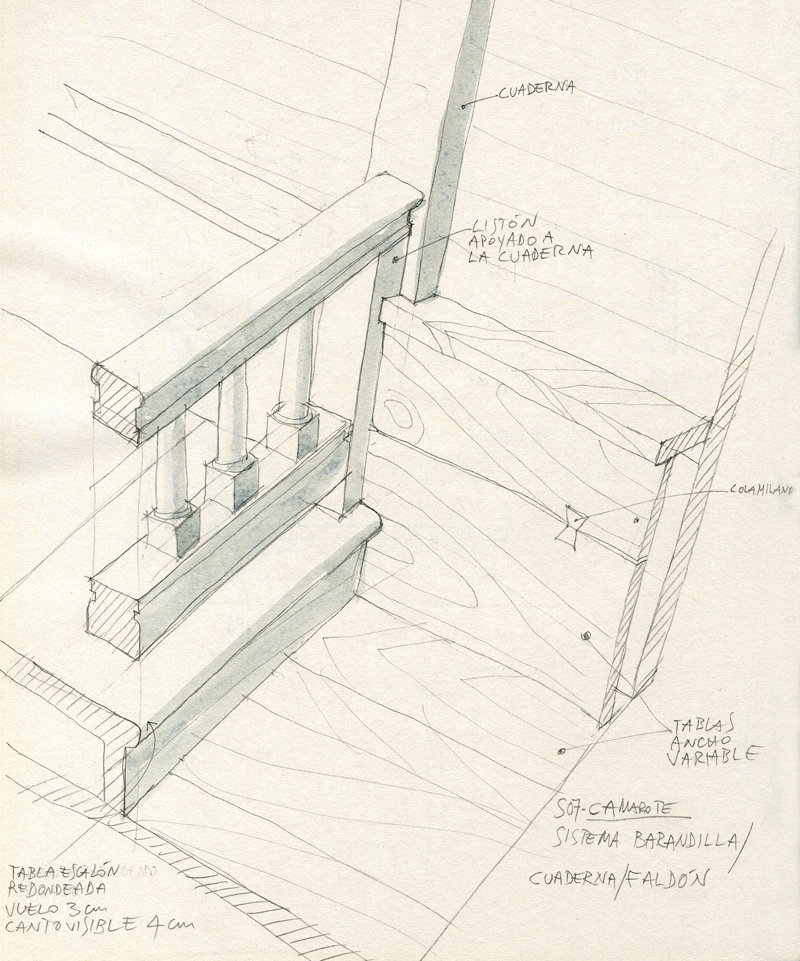 CUADERNA
LISTÓN
APOYADO A
LA CUADERNA
COLAMILANO
TABLAS
ANCHO
VARIABLE
S07-CAMAROTE
SISTEMA BARANDILLA/
CUADERNA/FALDÓN
TABLA ESCALÓN
REDONDEADA
VUELO 3 cm
CANTO VISIBLE 4 cm